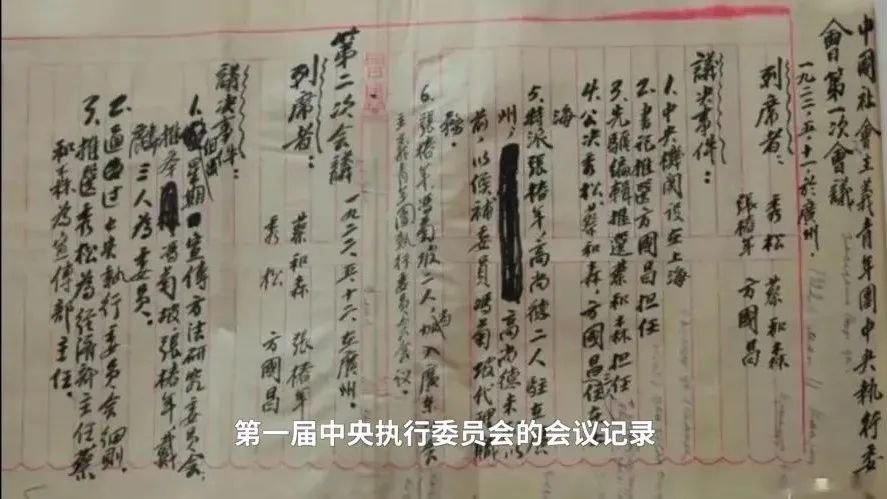 中國社會主義青年團中央執行委
會第一次會議
一九二二、五、十一、於廣州。
列席者：秀松 蔡和森
張椿年 方國昌
議决事件：
1、中央機関設在上海
2、書記推选方國昌担任
3、先驅編輯推選蔡和森担任
4、公决秀松、蔡和森、方國昌住在上
海
5、特派張椿年、高尚德二人駐在廣
州，高尚德未以
前，以候補委員馮菊坡代理職
務。
6、張椿年馮菊坡二人，加入廣東社会
主義青年團執行委員会会議。
第二次会議 一九二二、五、十二、在廣州。
列席者：蔡和森 張椿年
秀松 方國昌
議决事件：
1、組織星期日宣傳方法研究委員会，
推季馮菊坡、張椿年、戴
三人為委員。
2、通过中央執行委員会細則。
3、推選秀松為經濟部主任蔡
和森為宣傳部主任。
第一届中央执行委员会的会议记录